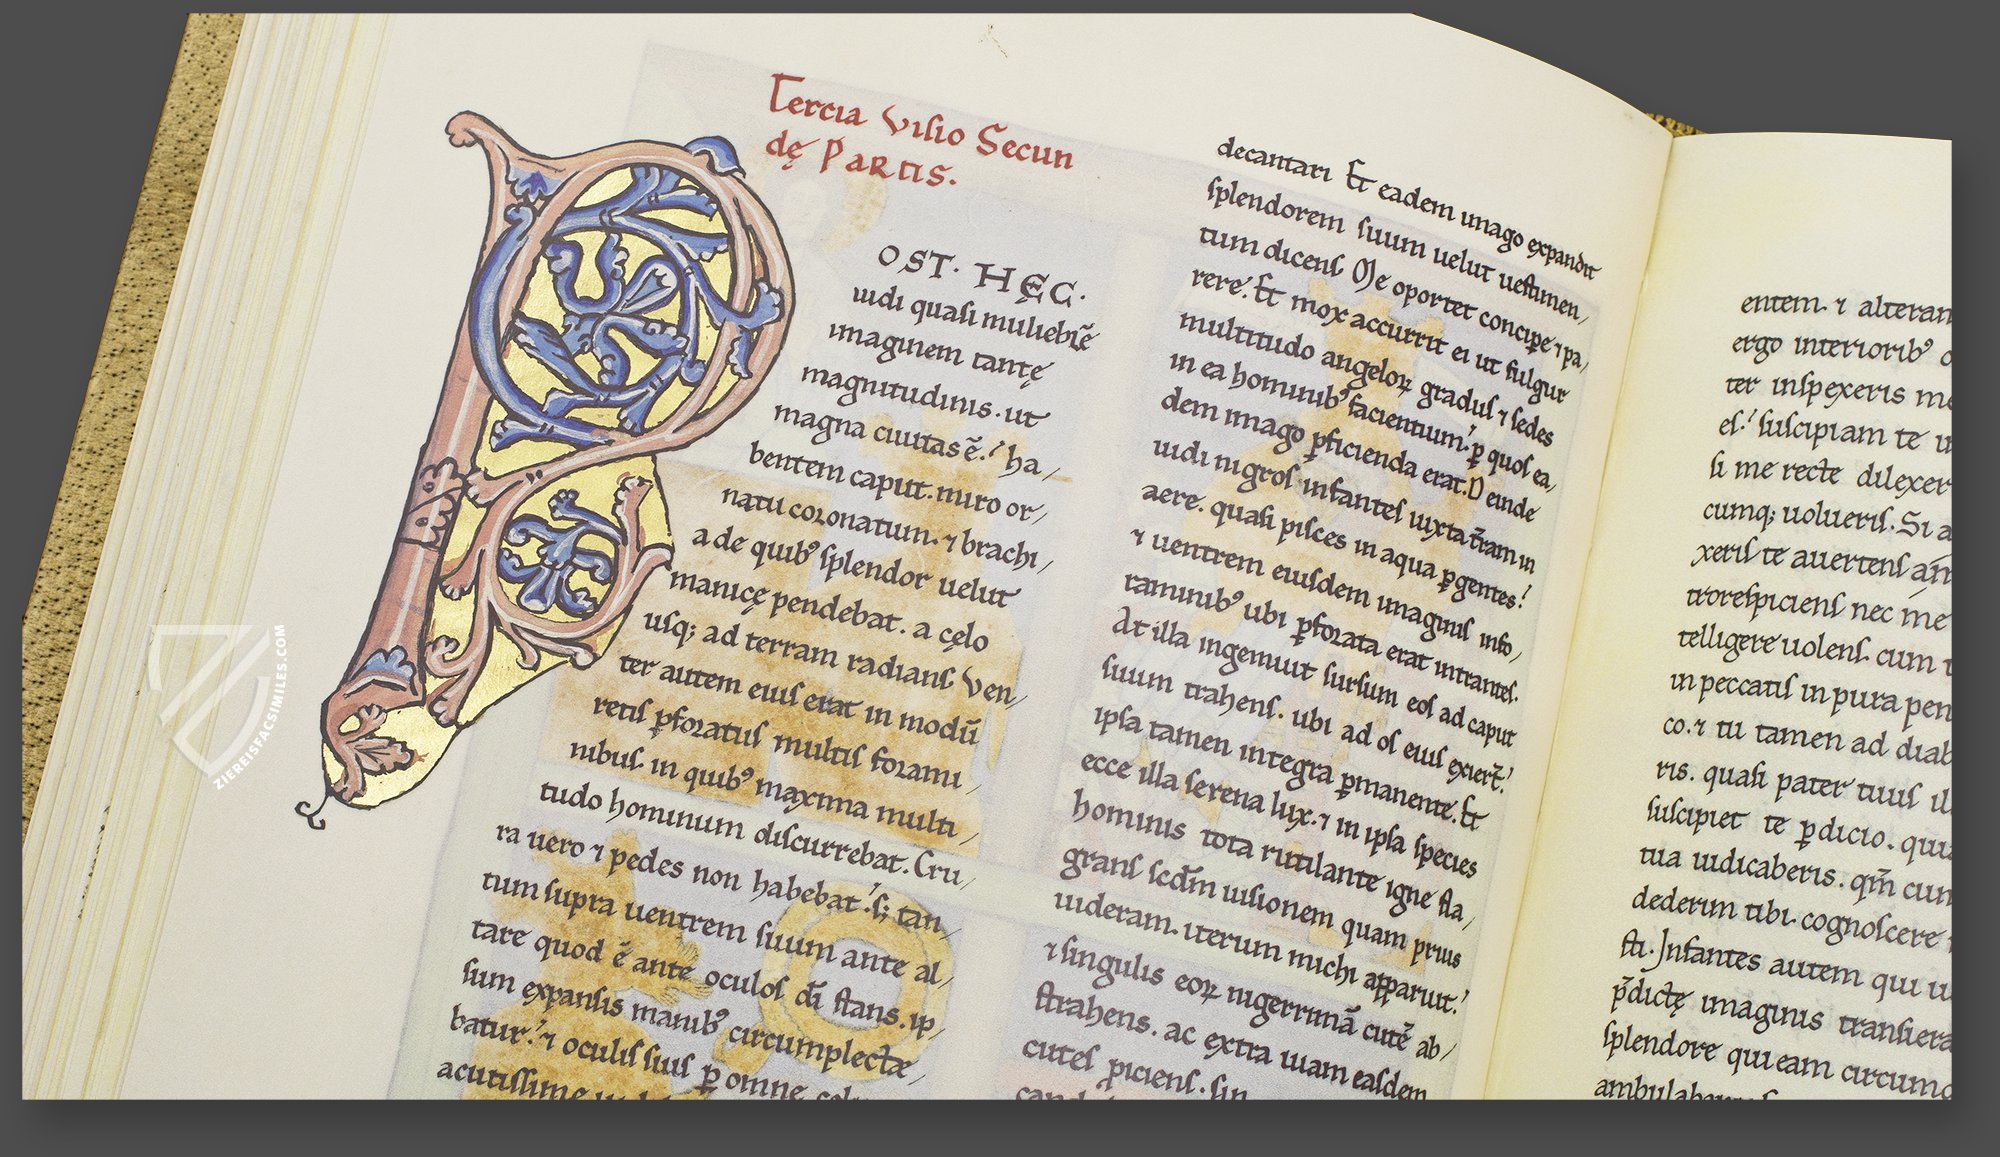 Tercia Visio Secun
dę Partis.
POST. HĘC.
uidi quasi muliebrē
imaginem tantę
magnitudinis. ut
magna ciuitas ē.' ha/
bentem caput. miro or/
natu coronatum. ⁊ brachi/
a de quibꝰ splendor uelut
manicę pendebat. a cęlo
usq; ad terram radians. Ven/
ter autem eius erat in modū
retis ꝑforatus multis forami/
nibus. in quibꝰ maxima multi/
tudo hominum discurrebat. Cru/
ra uero ⁊ pedes non habebat.' s; tan/
tum supra uentrem suum ante al/
tare quod ē ante oculos dī stans. ip/
sum expansis manibꝰ circumplecte/
batur.' ⁊ oculis suis ꝑ omne
acutissime
decantari Et eadem imago expandit
splendorem suum uelut uestimen/
tum dicens. Me oportet concipe ⁊ pa/
rere.' Et mox accurrit ei ut fulgur
multitudo angeloꝝ gradus ⁊ sedes
in ea hominibꝰ facientium.' ꝑ quos ea/
dem imago ꝑficienda erat. Deinde
uidi nigros infantes iuxta t̄ram in
aere. quasi pisces in aqua ꝑgentes.'
⁊ uentrem eiusdem imaginis info/
raminibꝰ ubi ꝑforata erat intrantes.
At illa ingemuit sursum eos ad caput
suum trahens. ubi ad os eius exiert̄.'
ipsa tamen integra ꝑmanente. Et
ecce illa serena lux. ⁊ in ipsa species
hominis tota rutilante igne fla/
grans scd̄m uisionem quam prius
uideram. iterum michi apparuit.'
⁊ singulis eoꝝ nigerrimā cutē ab/
strahens. ac extra uiam easdem
cutes ꝓiciens. sin
entem. ⁊ alteram
ergo interioribꝰ
ter inspexeris me
es.' suscipiam te
si me recte dilexer
cumq; uolueris. Si a
xeris te auertens
trorespiciens nec me
telligere uolens. cum
in peccatis in pura pen
co. ⁊ tu tamen ad diab
ris. quasi pater tuus il
suscipiet te ꝑdicio. qui
tua iudicaberis. qm̄ cum
dederim tibi. cognoscere
sti. Infantes autem qui
p̄dictę imaginis transiera
splendore qui eam circum
ZIEREISFACSIMILES.COM